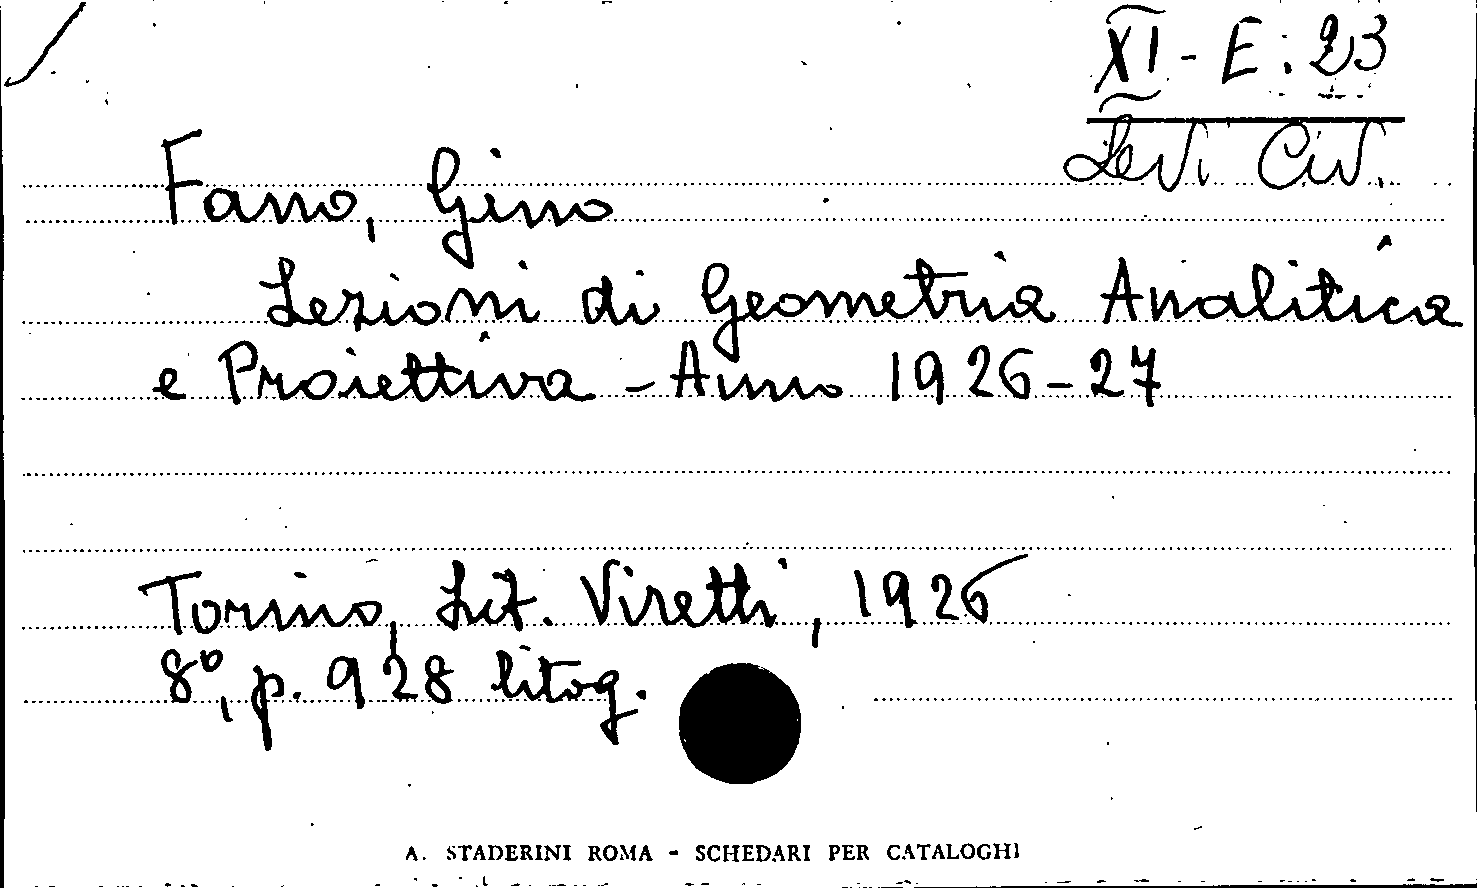 XI - E. 23
Levi Civ.
Fano, Gino
Lezioni di Geometria Analitica
e Proiettiva - Anno 1926-27
Torino, Lit. Viretti, 1926
8º, p. 928 litog.
A. STADERINI ROMA - SCHEDARI PER CATALOGHI